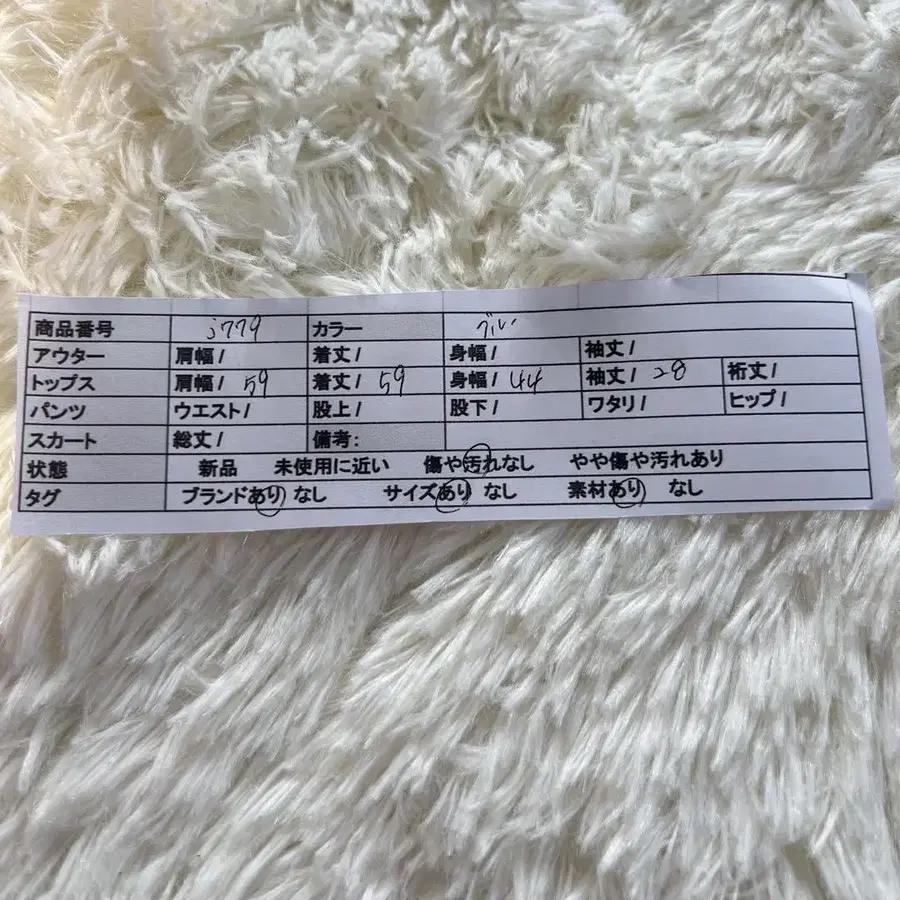 商品番号 j779 カラー ブルー
アウター 肩幅/ 着丈/ 身幅/ 袖丈/
トップス 肩幅/ 59 着丈/ 59 身幅/ 44 袖丈/ 28 裄丈/
パンツ ウエスト/ 股上/ 股下/ ワタリ/ ヒップ/
スカート 総丈/ 備考:
状態 新品 未使用に近い 傷や汚れなし やや傷や汚れあり
タグ ブランドあり なし サイズあり なし 素材あり なし